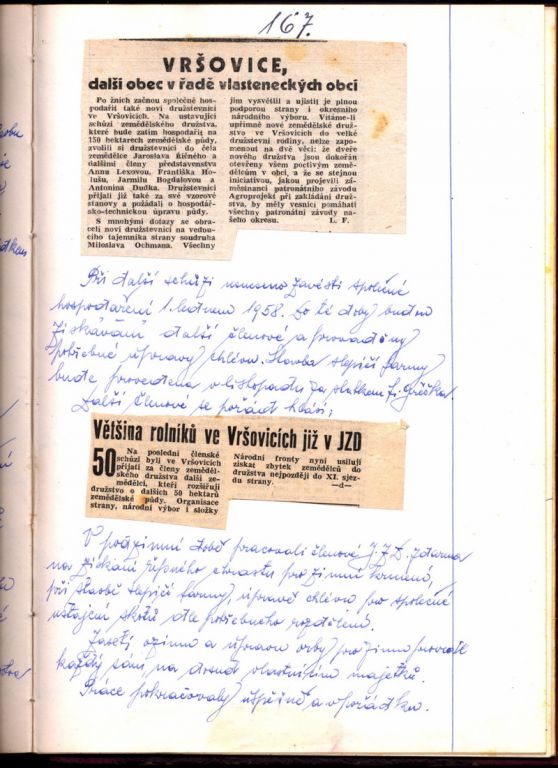 167.
VRŠOVICE,
další obec v řadě vlasteneckých obcí
Po žních začnou společně hos-
podařit také noví družstevníci
ve Vršovicích. Na ustavující
schůzi zemědělského družstva,
které bude zatím hospodařit na
150 hektarech zemědělské půdy,
zvolili si družstevníci do čela
zemědělce Jaroslava Říčného a
dalšími členy představenstva
Annu Lexovou, Františka Ho-
lušu, Jarmilu Bogdalovou a
Antonína Dudka. Družstevníci
přijali již také za své vzorové
stanovy a požádali o hospodář-
sko-technickou úpravu půdy.
S mnohými dotazy se obra-
celi noví družstevníci na vedou-
cího tajemníka strany soudruha
Miloslava Ochmana. Všechny
jim vysvětlil a ujistil je plnou
podporou strany i okresního
národního výboru. Vítáme-li
upřímně nové zemědělské druž-
stvo ve Vršovicích do velké
družstevní rodiny, nelze zapo-
menout na dvě věci: že dveře
nového družstva jsou dokořán
otevřeny všem poctivým země-
dělcům v obci, a že se stejnou
iniciativou, jakou projevili za-
městnanci patronátního závodu
Agroprojekt při zakládání druž-
stva, by měly vesnici pomáhati
všechny patronátní závody na-
šeho okresu. L. F.
Při další schůzi usneseno zavésti společné
hospodaření 1. lednem 1958. Do té doby budou
získáváni další členové a prováděny
potřebné úpravy chlévů. Stavba slepičí farmy
bude provedena v listopadu za statkem
Další členové se pořád hlásí;
Většina rolníků ve Vršovicích již v JZD
50 Na poslední členské
schůzi byli ve Vršovicích
přijati za členy zeměděl-
ského družstva další ze-
mědělci, kteří rozšiřují
družstvo o dalších 50 hektarů
zemědělské půdy. Organisace
strany, národní výbor i složky
Národní fronty nyní usilují
získat zbytek zemědělců do
družstva nejpozději do XI. sjez-
du strany. —d—
V podzimní době pracovali členové J.Z.D. zdarma
na získání řepného chrastu pro zimní krmení,
při stavbě slepičí farmy, úpravě chlévů pro společné
ustájení skotu dle potřebného rozdělení.
Zasetí ozimů a úpravu orby pro zimu provedl
každý sám, na dosud vlastnícím majetku.
Práce pokračovaly úspěšně a v pořádku.